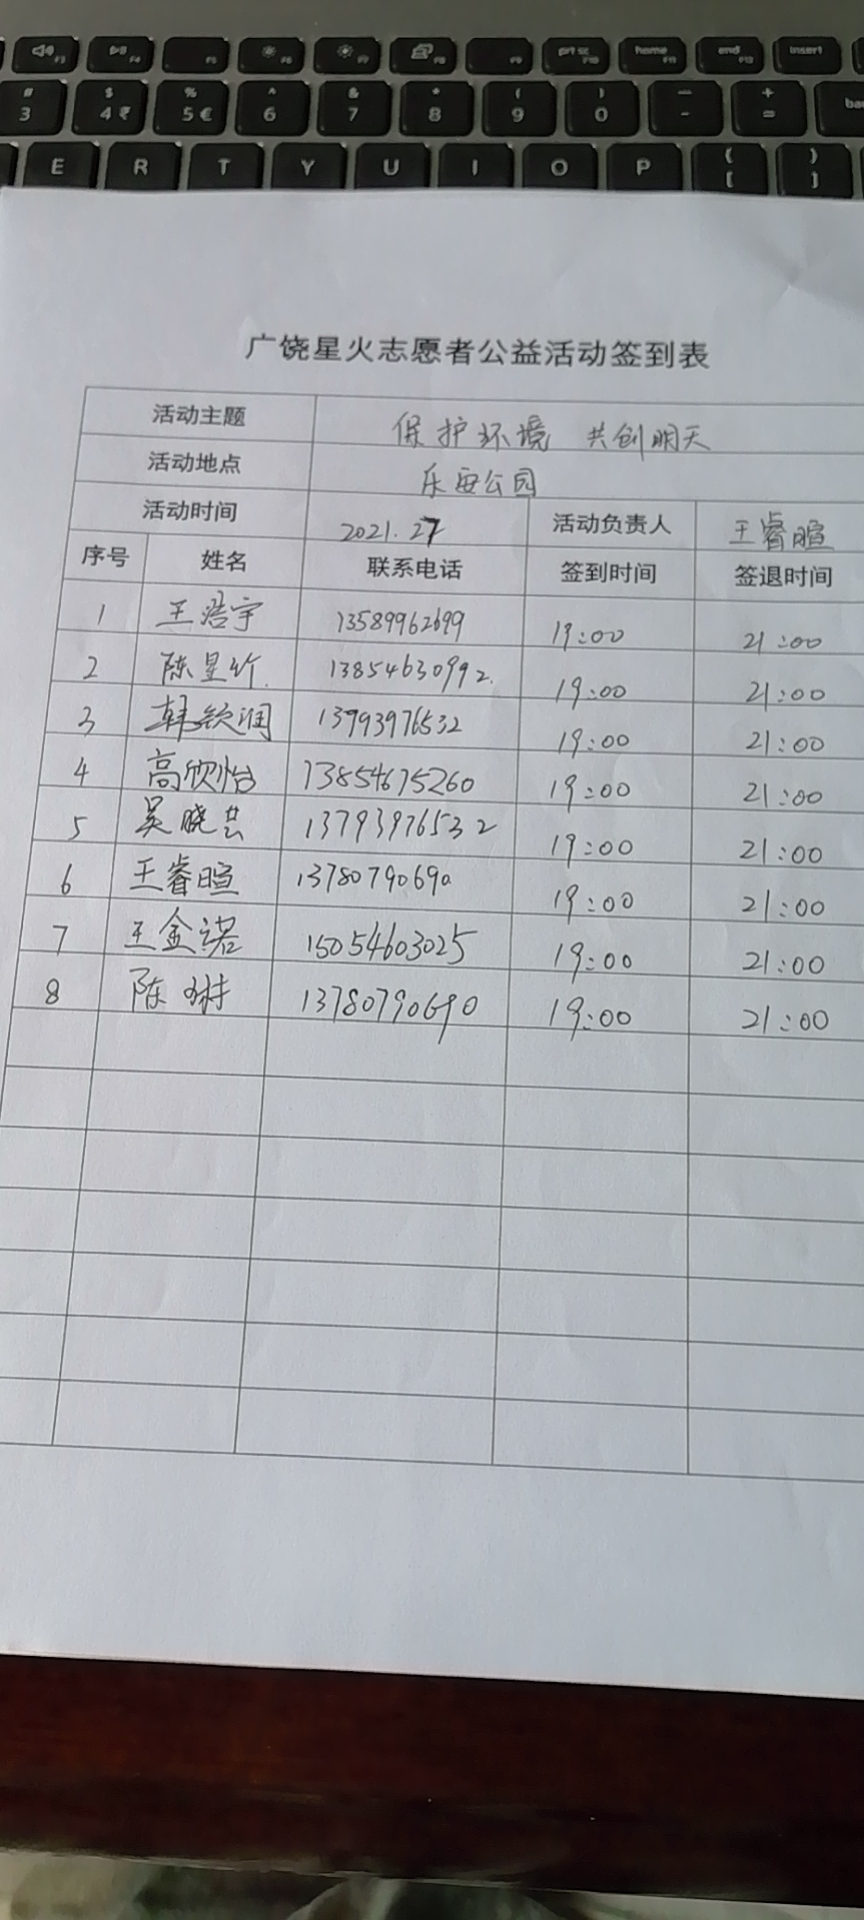 F3 F4 F5 F6 F7 F8 F9 prt sc F10 home F11 end F12 insert
# 3 $ 4 ₹ % 5 € ^ 6 & 7 * 8 ( 9 ) 0 — - + = bac
E R T Y U I O P { [ } ]
广饶星火志愿者公益活动签到表
活动主题 保护环境 共创明天
活动地点 乐安公园
活动时间 2021.27 活动负责人 王睿暄
序号 姓名 联系电话 签到时间 签退时间
1 王浩宇 13589962699 19:00 21:00
2 陈星竹 13854630992. 19:00 21:00
3 韩钦润 13793976532 19:00 21:00
4 高欣怡 13854675260 19:00 21:00
5 吴晓芸 13793976532 19:00 21:00
6 王睿暄 13780790690 19:00 21:00
7 王金诺 15054603025 19:00 21:00
8 陈琳 13780790690 19:00 21:00